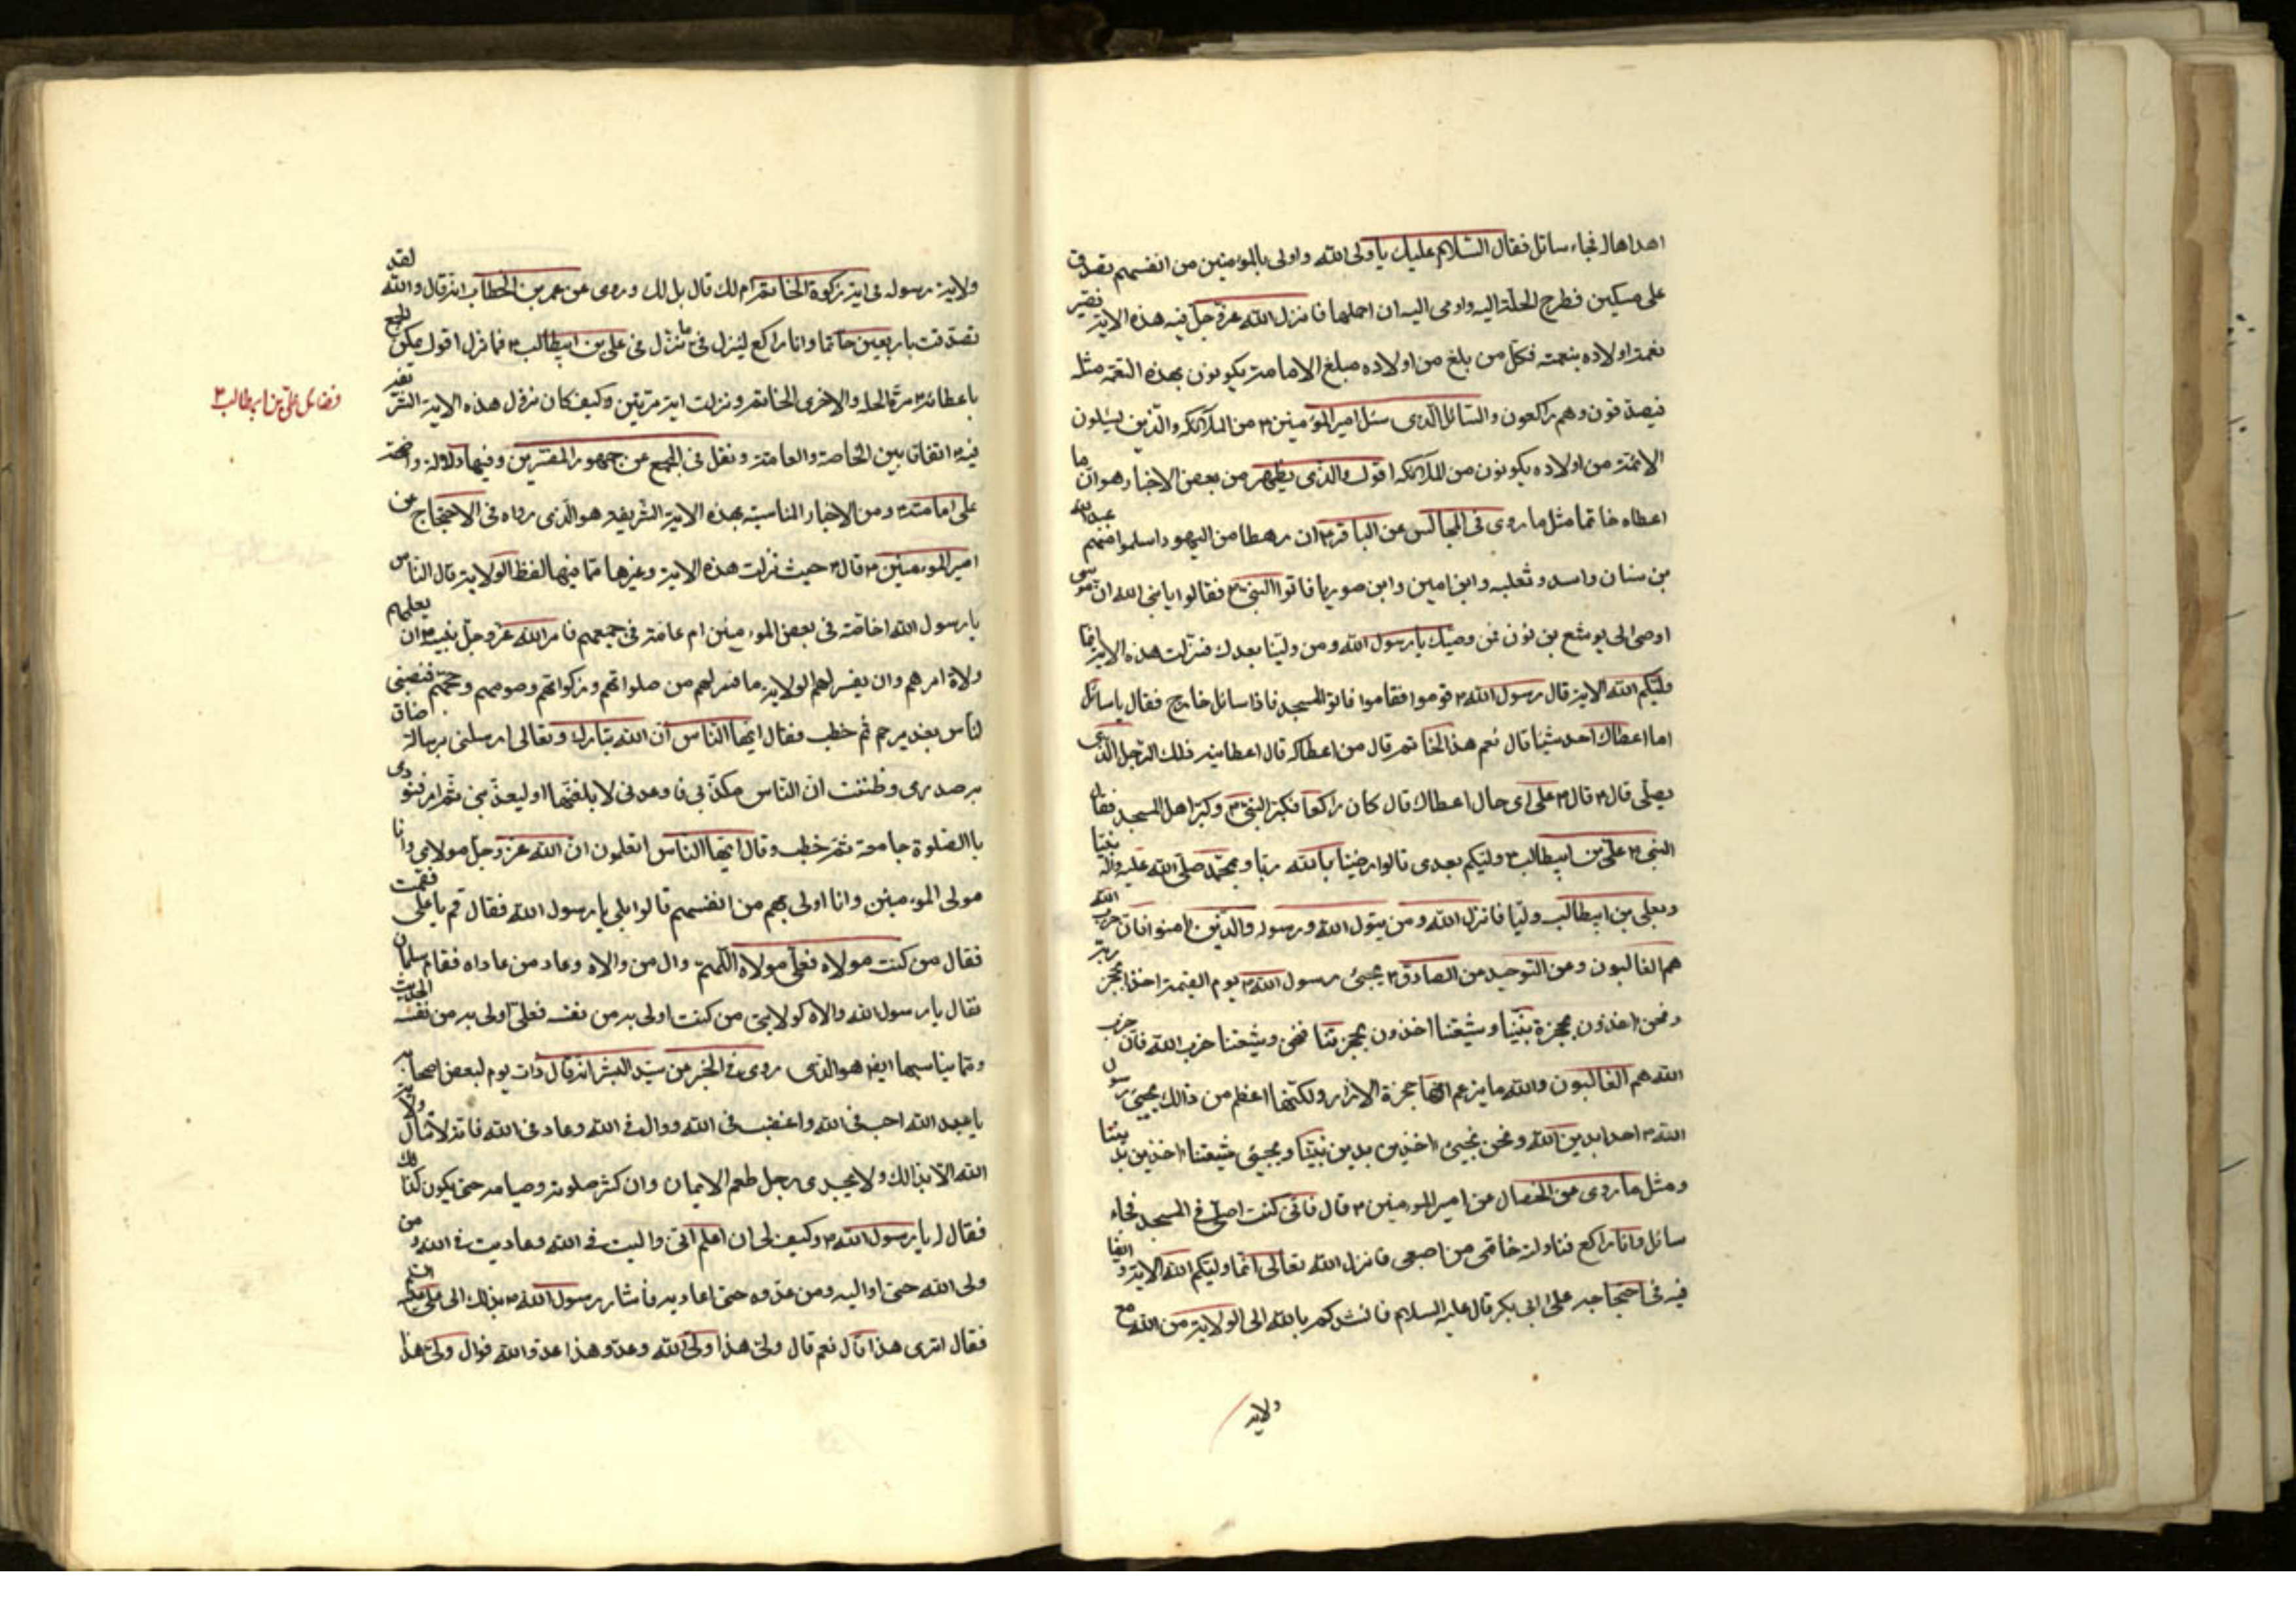 اهداها له فجاء سائل فقال السّلام عليك يا ولى الله واولى بالمؤمنين من انفسهم تصدق
على مسكين فطرح الحلّة اليه واومى اليه ان احملها فانزل الله عزّ وجلّ فيه هذه الاية فصير
نعمة اولاده بنعمته فكل من بلغ من اولاده مبلغ الامامة يكونون بهذه النعمة مثله
فيصدقون وهم راكعون والسّائل الّذى سئل امير المؤمنين ٤ من الملائكة والّذين يسئلون
الائمّة من اولاده يكونون من الملائكة اقول والذى يظهر من بعض الاخبار هو ان ما
اعطاه خاتما مثل ما روى فى المجالس عن الباقر ٤ ان رهطا من اليهود اسلموا منهم عبد الله
بن سنان واسد وثعلبه وابن امين وابن صوريا فاتوا النبى ٤ فقالوا يا نبى الله ان موسى
اوصى الى يوشع بن نون فمن وصيّك يا رسول الله ومن وليّنا بعدك فنزلت هذه الاية انّما
وليّكم الله الاية قال رسول الله ٤ قوموا فقاموا فاتوا المسجد فاذا سائل خارج فقال يا سائل
اما اعطاك احد شيئا قال نعم هذا الخاتم قال من اعطاكه قال اعطانيه ذلك الرّجل الّذى
يصلّى قال ٤ قال ٤ على اى حال اعطاك قال كان راكعا فكبّر النبىّ ٤ وكبّر اهل المسجد فقال
النبى ٤ علىّ بن ابيطالب ٤ وليّكم بعدى قالوا رضينا بالله ربّا وبمحمّد صلّى الله عليه واله نبيّا
وبعلى بن ابيطالب وليّا فانزل الله ومن يتولّ الله ورسوله والّذين امنوا فانّ حزب الله
هم الغالبون ومن التوحيد عن الصادق ٤ يجيئ رسول الله ٤ يوم القيمة اخذا بحجزة ربّه
ونحن اخذون بحجزة نبيّنا وشيعتنا اخذون بحجزتنا فنحن وشيعتنا حزب الله فانّ حزب
الله هم الغالبون والله ما يزعم انّها حجزة الازار ولكنّها اعظم من ذالك يجيئ رسول
الله ٤ اخذا بدين الله ونحن نجيئ اخذين بدين نبيّنا ويجيئ شيعتنا اخذين بديننا
ومثل ما روى عن الخصال عن امير المؤمنين ٤ قال فانّى كنت اصلّى فى المسجد فجاء
سائل وانا راكع فناولته خاتمى من اصبعى فانزل الله تعالى انّما وليّكم الله الاية و ايضا
فيه فى احتجاجه على ابى بكر قال عليه السلام فانشدكم بالله الى الولاية من الله مع
ولاية
ولاية رسوله فى اية زكوة الخاتم ام لك قال بل لك وروى عن عمر بن الخطاب انه قال والله لقد
تصدقت باربعين خاتما وانا راكع لينزل فىّ ما نزل فى على بن ابيطالب ٤ فما نزل اقول يمكن الجمع
باعطائه ٤ مرّة الحلة والاخرى الخاتم ونزلت اية مرّتين وكيف كان نزول هذه الاية الشريفة
فيه ٤ اتفاق بين الخاصة والعامّة ونقل فى المجمع عن جمهور المفسّرين وفيها دلالة واضحة
على امامته ٤ ومن الاخبار المناسبة بهذه الاية الشريفة هو الّذى رواه فى الاحتجاج عن
امير المؤمنين ٤ قال ٤ حيث نزلت هذه الاية وغيرها ممّا فيها لفظ الولاية قال الناس
يا رسول الله اخاصّة فى بعض المؤمنين ام عامّة فى جميعهم فامر الله عزّ وجلّ نبيّه ٤ ان يعلمهم
ولاة امرهم وان يفسر لهم الولاية ما فسر لهم من صلواتهم وزكواتهم وصومهم وحجّهم فنصبنى
لناس بغدير خم ثم خطب فقال ايّها النّاس انّ الله تبارك وتعالى ارسلنى برسالة ضاق
به صدرى وظننت انّ النّاس مكذّبى فاوعدنى لابلغنّها او ليعذّبنى ثمّ امر فنودى
باالصّلوة جامعة ثمّ خطب وقال ايّها النّاس اتعلمون انّ الله عزّ وجلّ مولاى وانا
مولى المؤمنين وانا اولى بهم من انفسهم قالوا بلى يا رسول الله فقال قم يا على فقمت
فقال من كنت مولاه فعلىّ مولاه اللّهمّ وال من والاه وعاد من عاداه فقام سلمان
فقال يا رسول الله والاه كولايتى من كنت اولى به من نفسه فعلىّ اولى به من نفسه الحديث
وممّا يناسبها ايضا هو الّذى روى فى الخبر عن سيّد البشر انه قال ذات يوم لبعض اصحابه
يا عبد الله احب فى الله وابغض فى الله ووال فى الله وعاد فى الله فانّه لا تنال ولاية
الله الّا بذالك ولا يجدى رجل طعم الايمان وان كثر صلوته وصيامه حتى يكون كذالك
فقال له يا رسول الله ٤ وكيف لى ان اعلم انّى واليت فى الله وعاديت فى الله ومن
ولى الله حتى اواليه ومن عدوه حتى اعاديه فاشار رسول الله ٤ بذلك الى على عليه السّلم
فقال اترى هذا قال نعم قال ولىّ هذا ولىّ الله وعدوّ هذا عدوّ الله فوال ولىّ هذا
فضائل علىّ بن ابيطالب ٤